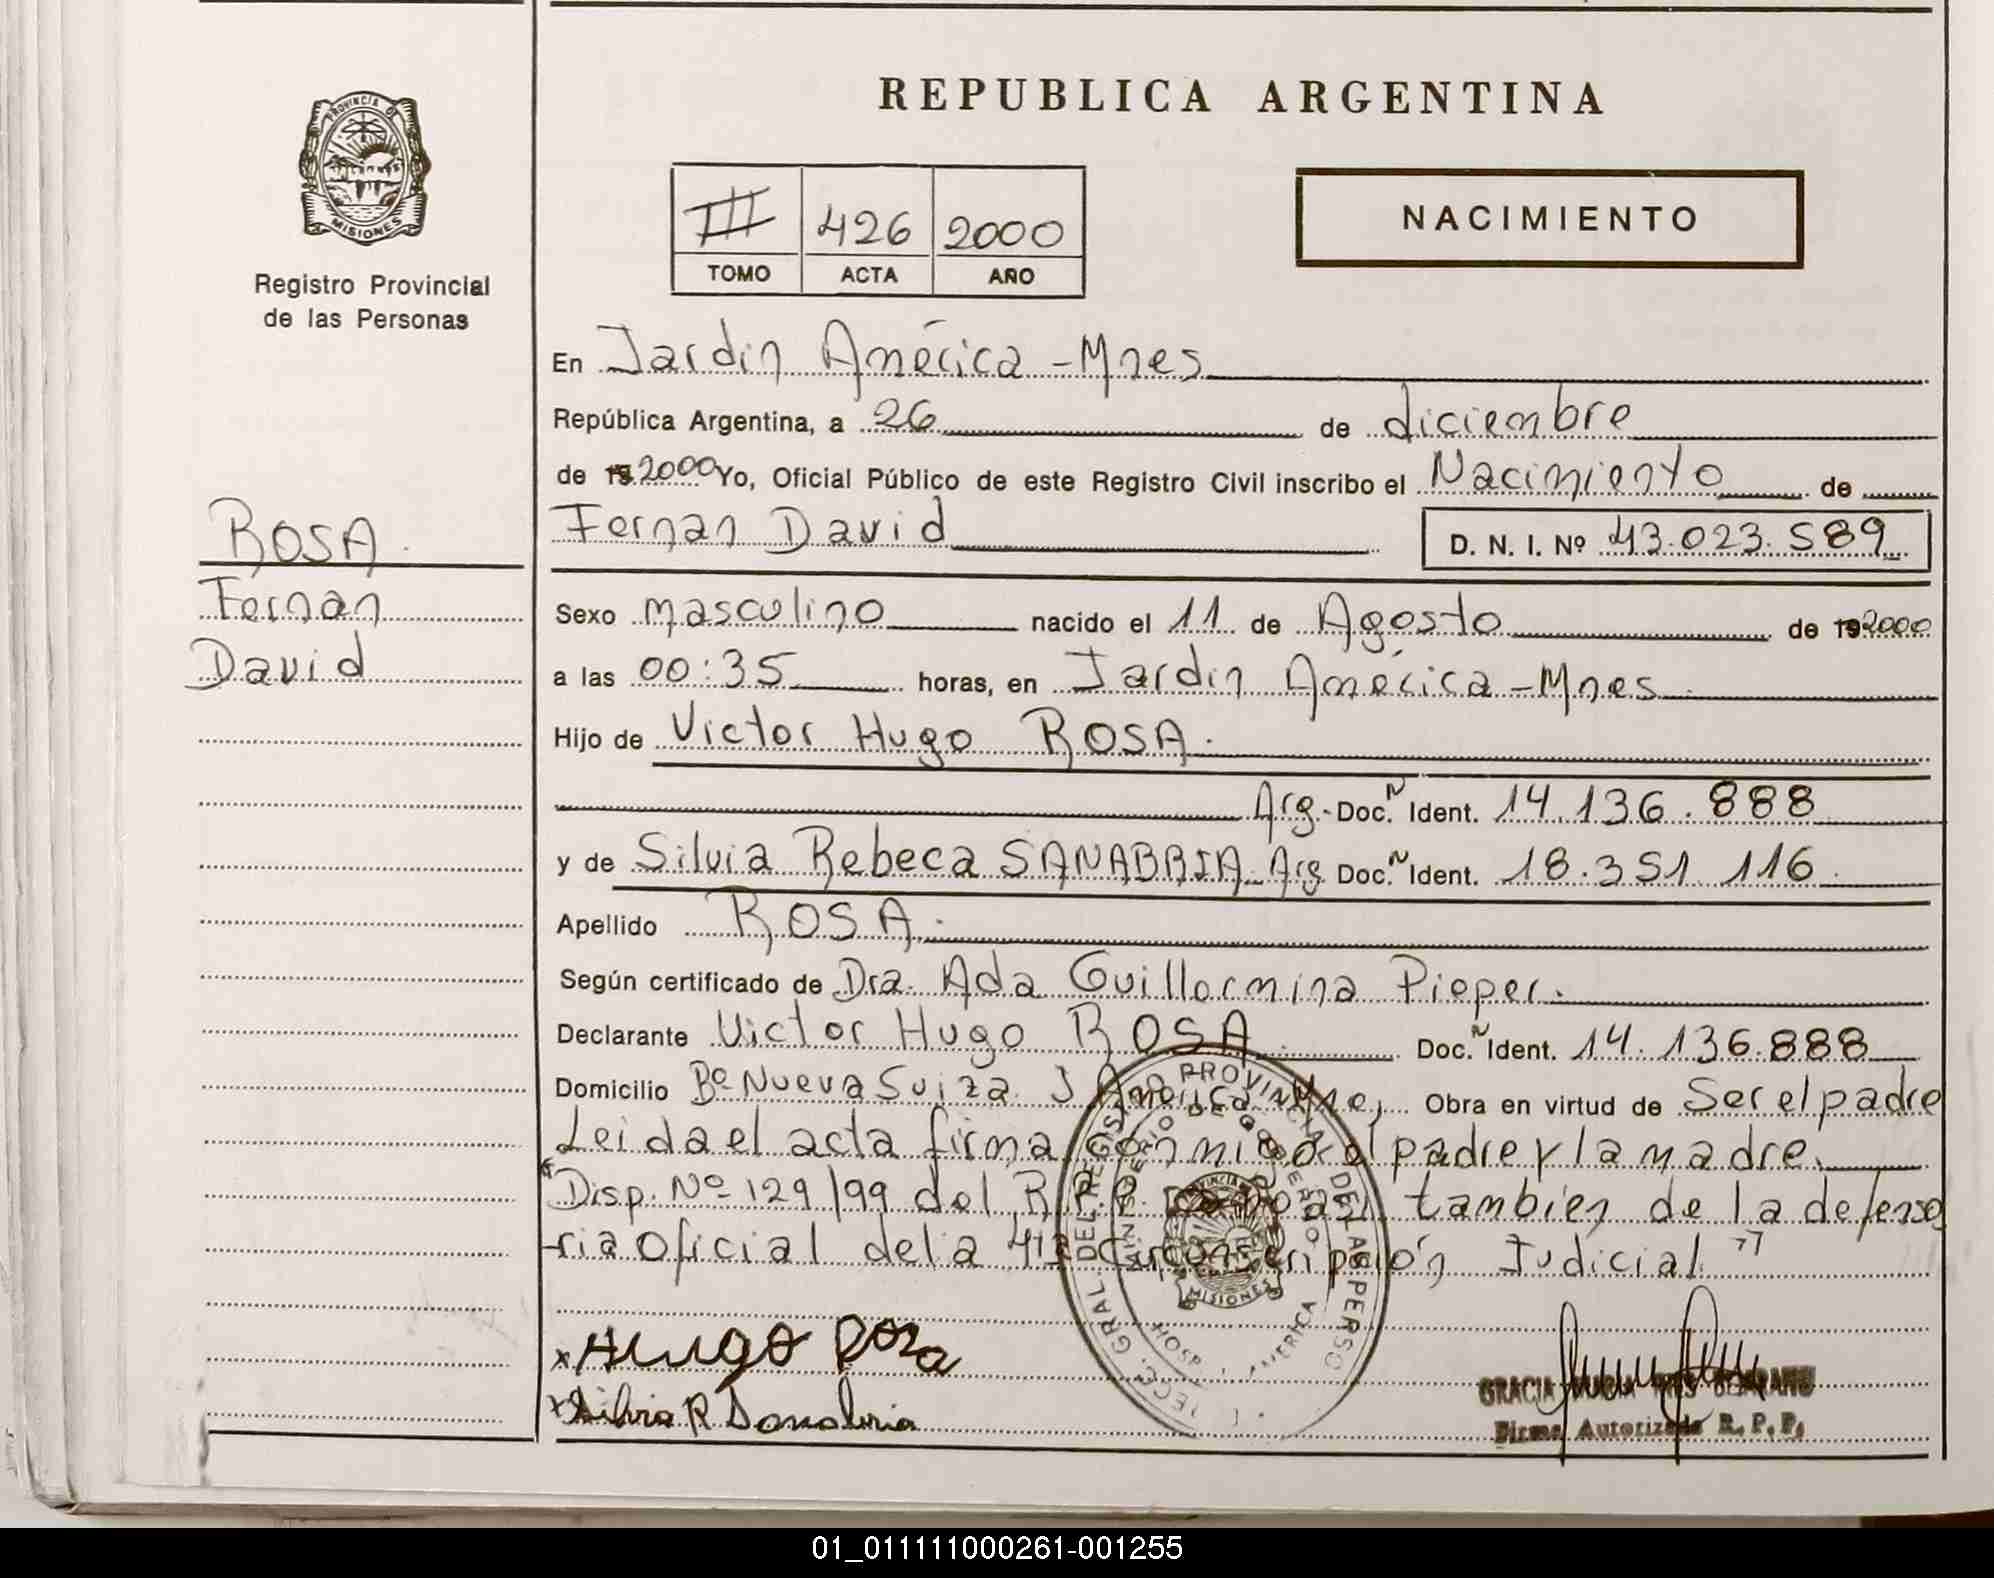 REPUBLICA ARGENTINA
PROVINCIA DE MISIONES
Registro Provincial
de las Personas
III 426 2000
TOMO ACTA AÑO
NACIMIENTO
En Jardin América - Mnes
República Argentina, a 26 de diciembre
de 19 2000 Yo, Oficial Público de este Registro Civil inscribo el Nacimiento de
Fernan David D. N. I. Nº 43.023.589
ROSA.
Fernan
David
Sexo masculino nacido el 11 de Agosto de 19 2000
a las 00:35 horas, en Jardin América - Mnes.
Hijo de Victor Hugo ROSA.
Arg. - Doc. N Ident. 14.136.888
y de Silvia Rebeca SANABRIA Arg Doc. N Ident. 18.351.116
Apellido ROSA.
Según certificado de Dra. Ada Guillermina Pieper.
Declarante Victor Hugo ROSA Doc. N Ident. 14.136.888
Domicilio Bº Nueva Suiza J América Mnes, Obra en virtud de Ser el padre
Leida el acta firma conmigo el padre y la madre.
"Disp. Nº 129/99 del R.P.P. tambien de la defenso
ria Oficial de la 4ta Circunscripción Judicial"
x Hugo Rosa
x Silvia R Sanabria
GRACIA
Firma Autorizada R. P. P.
DIRECC. GRAL DEL REGISTRO PROVINCIAL DE LAS PERSO
MINISTERIO DE GOBIERNO
PROVINCIA
MISIONES
HOSP. J. AMERICA
01_011111000261-001255